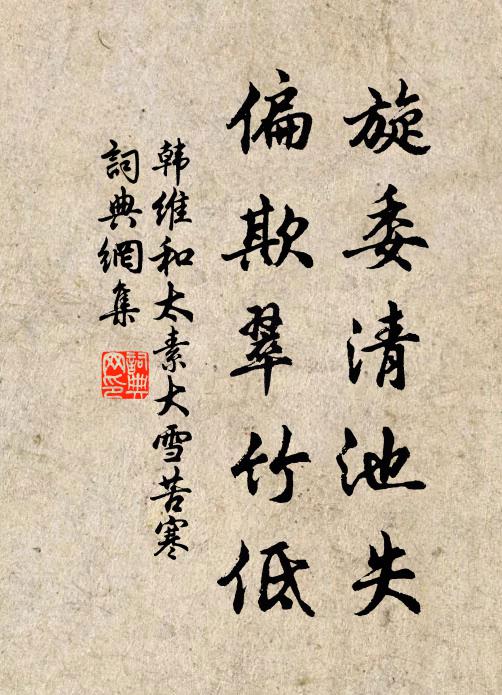 旋委清池失
偏欺翠竹低
韩维和太素大雪苦寒
詞典網集
詞典
网印